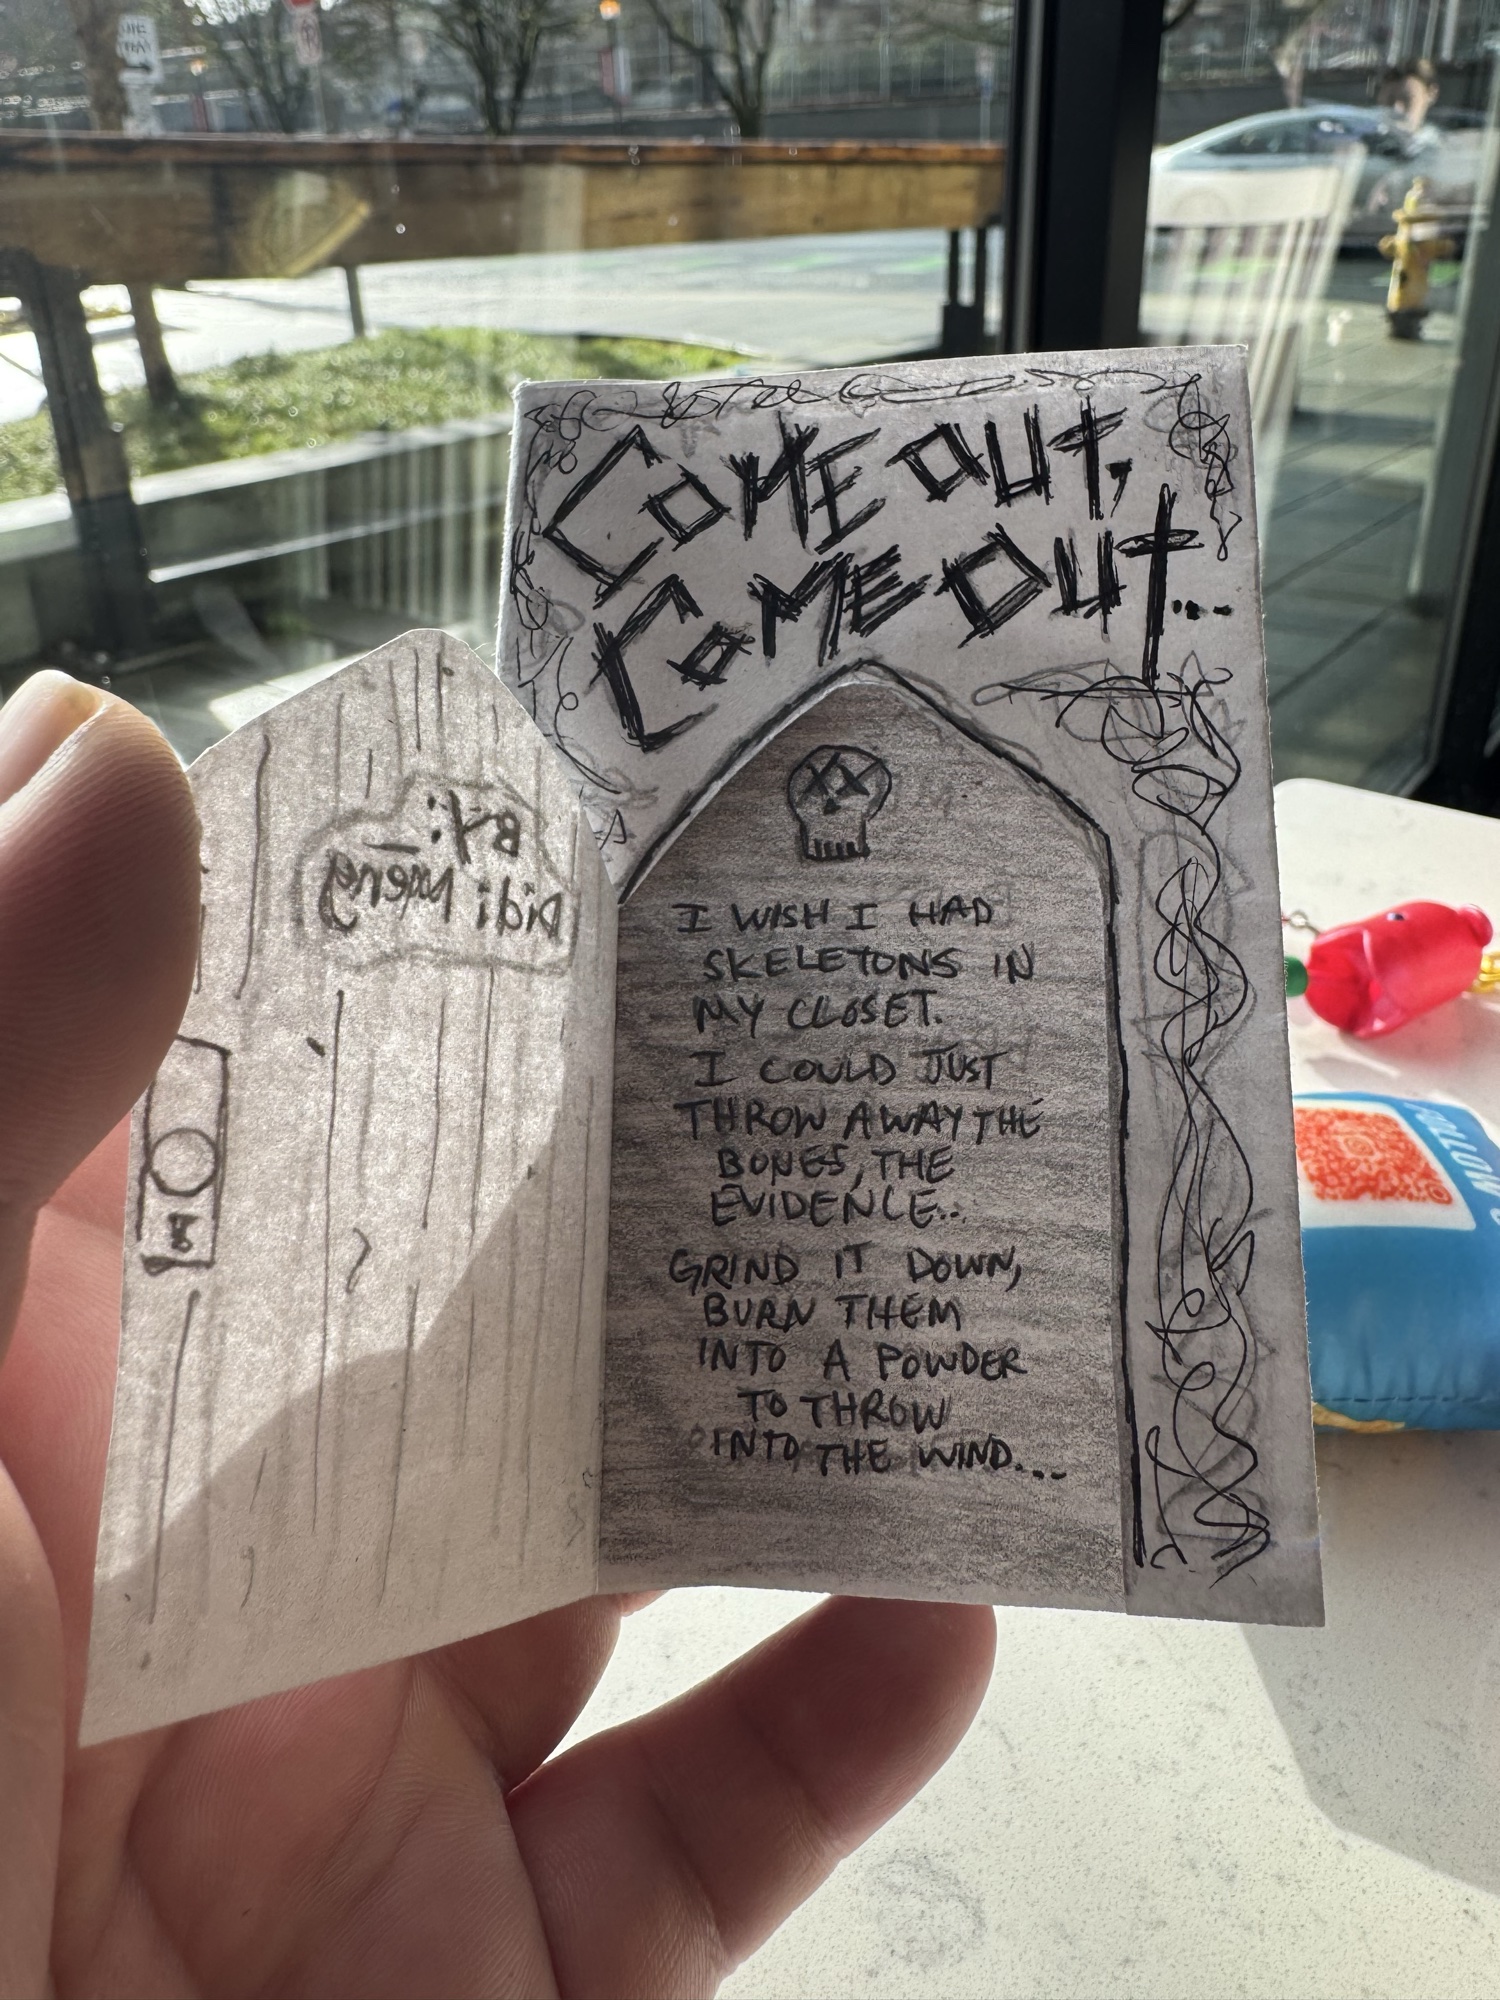 COME OUT,
COME OUT...
I WISH I HAD
SKELETONS IN
MY CLOSET.
I COULD JUST
THROW AWAY THE
BONES, THE
EVIDENCE...
GRIND IT DOWN,
BURN THEM
INTO A POWDER
TO THROW
INTO THE WIND...
BY:
Didi
FOLLOW